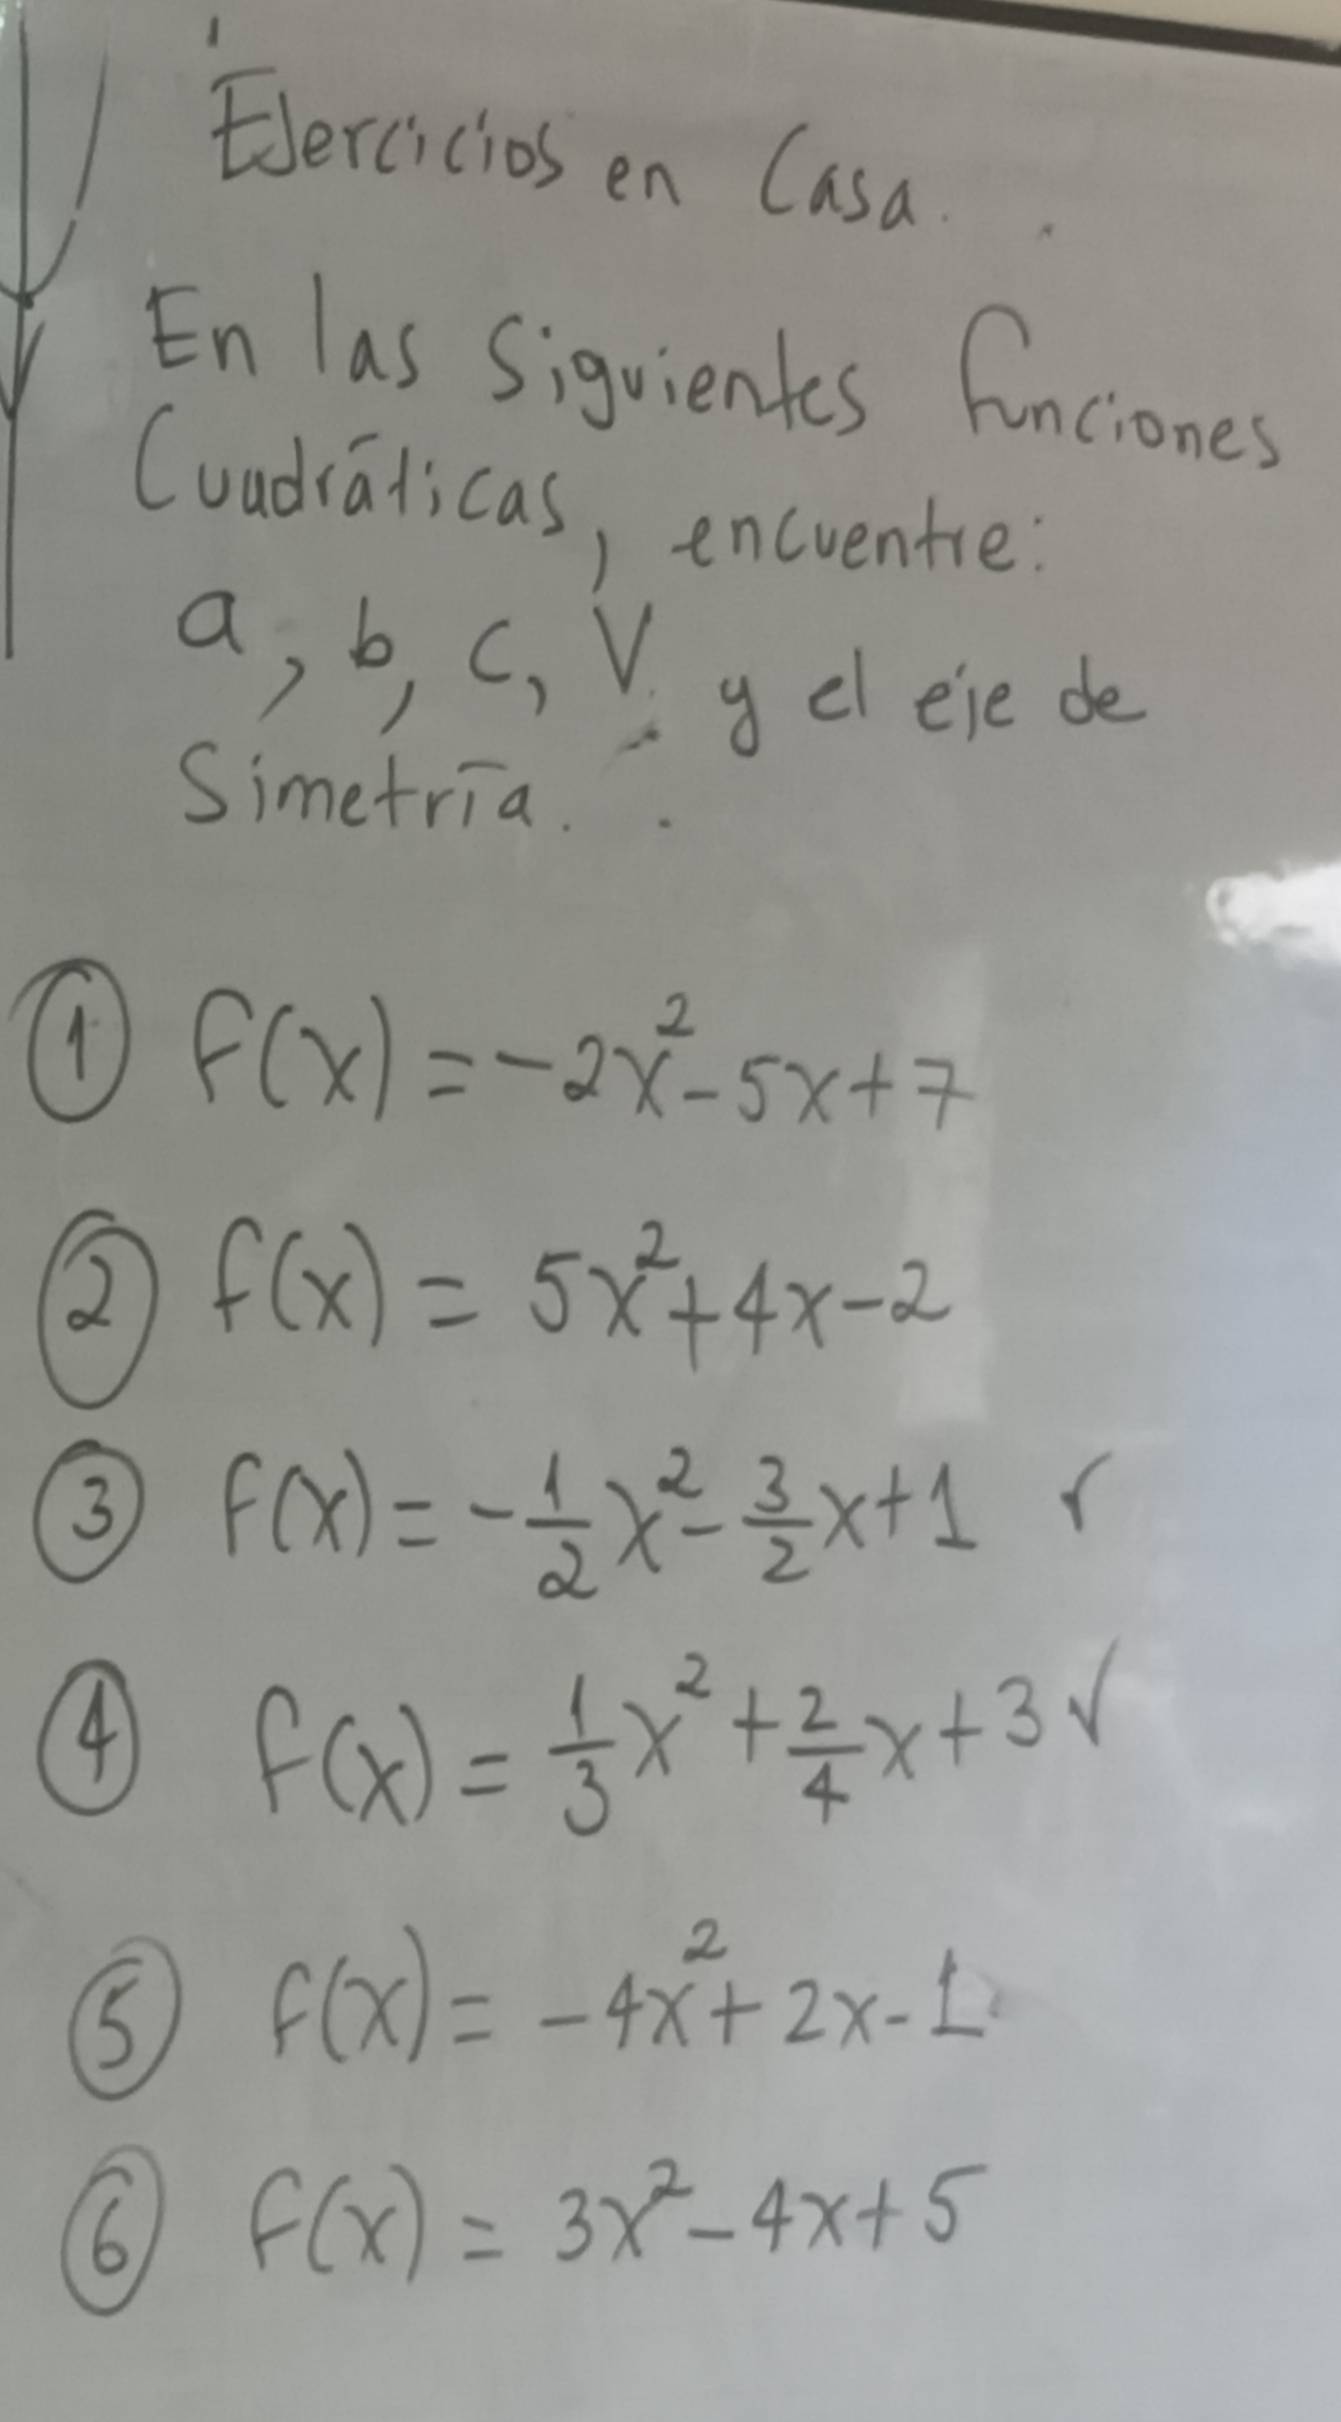 Ejercicios en Casa.
En las Siguientes funciones
Cuadráticas, encuentre:
a, b, c, V. y el eje de
Simetría.
① f(x) = -2x² - 5x + 7
② f(x) = 5x² + 4x - 2
③ f(x) = -1/2 x² - 3/2 x + 1
④ f(x) = 1/3 x² + 2/4 x + 3 ✓
⑤ f(x) = -4x² + 2x - 1
⑥ f(x) = 3x² - 4x + 5